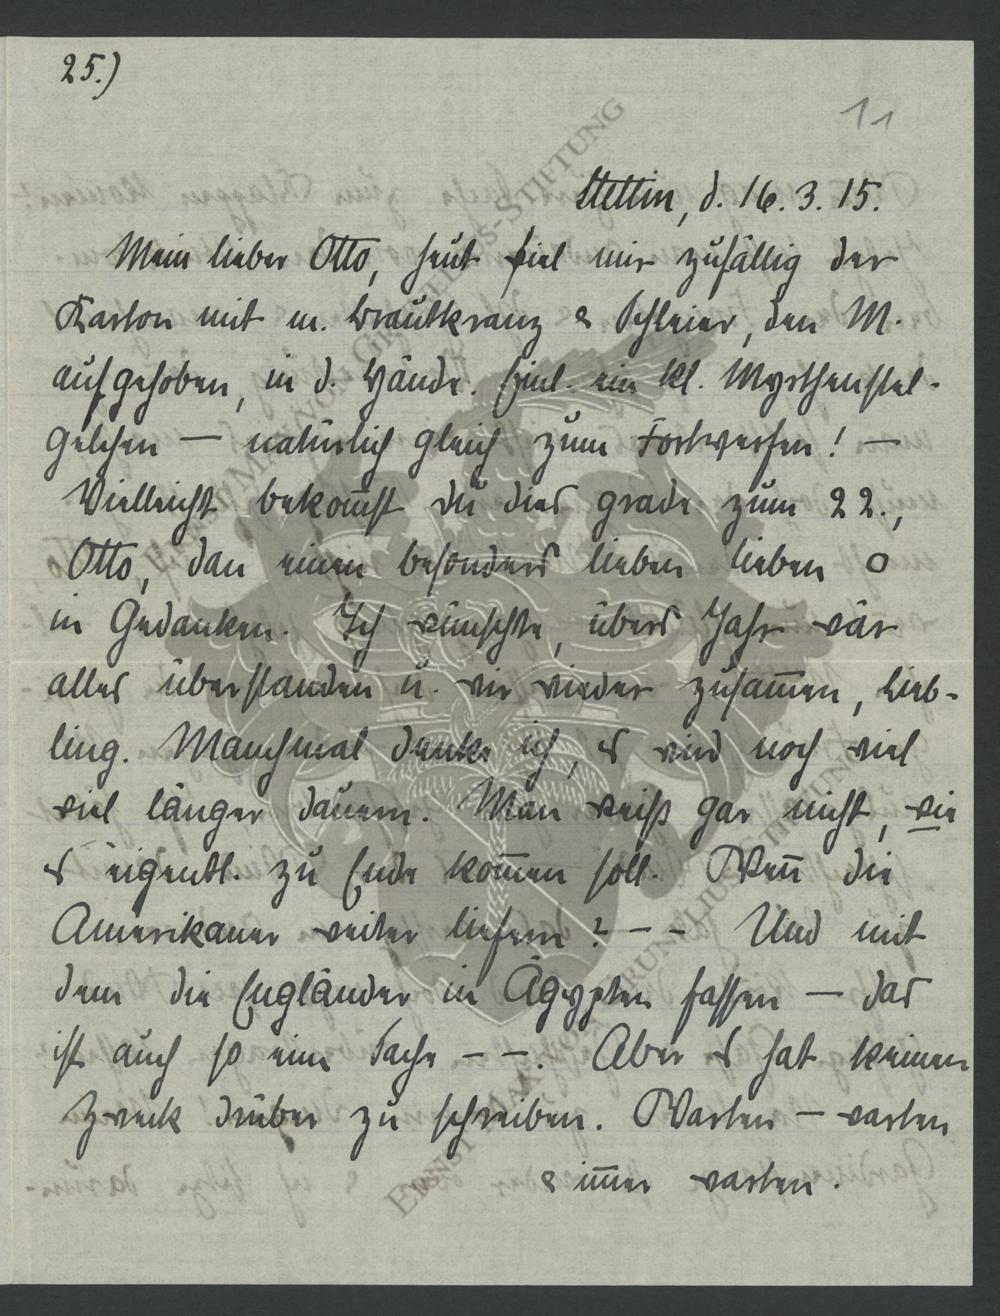 25.)
11
Stettin, d. 16. 3. 15.
Mein lieber Otto, heut fiel mir zufällig der
Karton mit m. Brautkranz & Schleier, den M.
aufgehoben, in d. Hände. Einl. ein kl. Myrthenstel-
gelchen — natürlich gleich zum Fortwerfen! —
Vielleicht bekom̅st du dies grade zum 22.,
Otto, dan einen besonders lieben lieben o
in Gedanken. Ich wünschte, übers Jahr wär
alles überstanden u. wir wieder zusam̅en, Lieb-
ling. Manchmal denke ich, es wird noch viel
viel länger dauern. Man weiß gar nicht, wie
es eigentl. zu Ende kom̅en soll. Wen̅ die
Amerikaner weiter liefern? - - Und mit
dem die Engländer in Ägypten fassen — das
ist auch so eine Sache - -. Aber es hat keinen
Zweck drüber zu schreiben. Warten — warten
& im̅er warten.
ERNST MAX VON GRUNELIUS-STIFTUNG
ERNST MAX VON GRUNELIUS-STIFTUNG